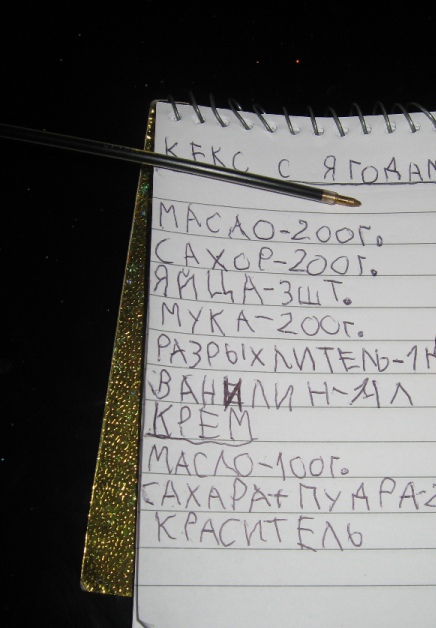 КЕКС С ЯГОДАМ
МАСЛО-200г.
САХОР-200г.
ЯЙЦА-3шт.
МУКА-200г.
РАЗРЫХЛИТЕЛЬ-1
ВАНИЛИН-1Л
КРЕМ
МАСЛО-100г.
САХАРА+ПУДРА-2
КРАСИТЕЛЬ